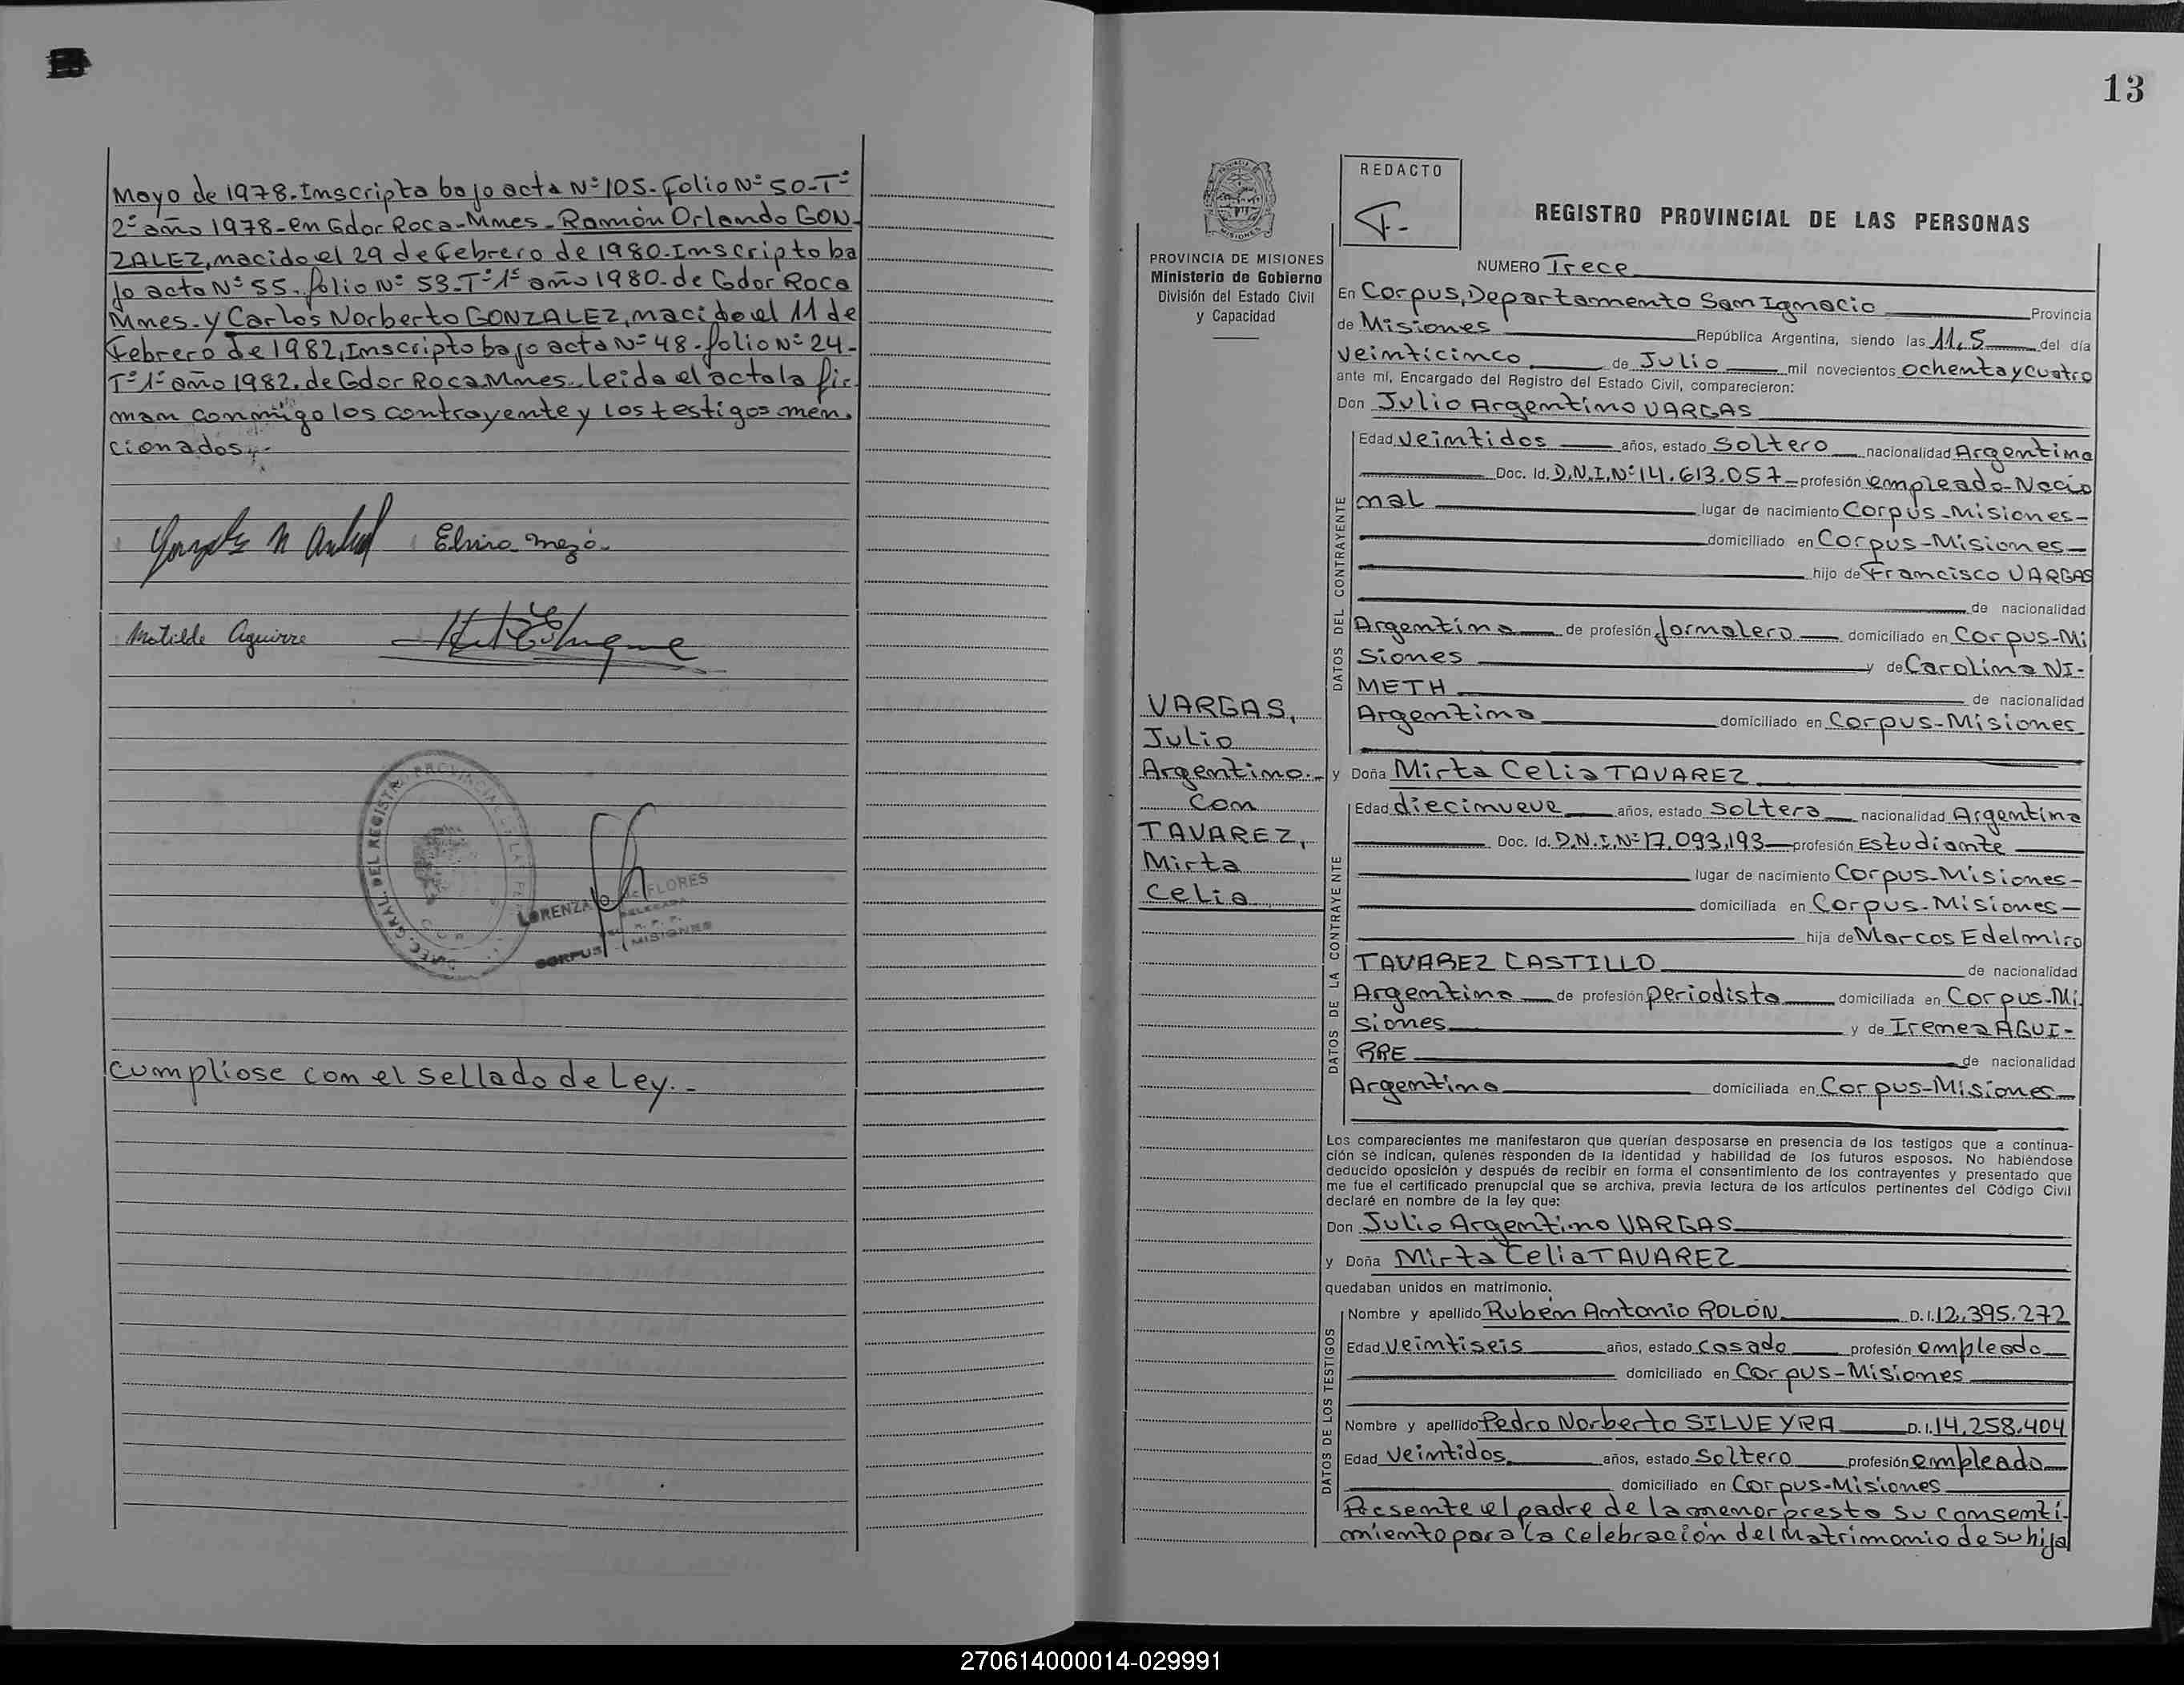 Mayo de 1978. Inscripta bajo acta Nº 105. Folio Nº 50-Tº
2º año 1978-en Gdor Roca-Mnes-Ramón Orlando GON-
ZALEZ, nacido el 29 de Febrero de 1980. Inscripto ba
jo acta Nº 55. folio Nº 53-Tº 1º año 1980-de Gdor Roca
Mnes-y Carlos Norberto GONZALEZ, nacido el 11 de
Febrero de 1982, Inscripto bajo acta Nº 48-folio Nº 24-
Tº 1º año 1982. de Gdor Roca Mnes-Leida el acta la fir
man conmigo los contrayente y los testigos men-
cionados.-
Elvira
Matilde Aguirre
DIREC. GRAL. DEL REGISTRO PROVINCIAL DE LAS
LORENZA de FLORES
DELEGADA
R. P. P.
CORPUS (MISIONES
Cumpliose con el sellado de Ley.-
13
PROVINCIA DE MISIONES
Ministerio de Gobierno
División del Estado Civil
y Capacidad
VARGAS,
Julio
Argentino.-
Con
TAVAREZ,
Mirta
Celia
REDACTO
F.-
REGISTRO PROVINCIAL DE LAS PERSONAS
NUMERO Trece
En Corpus, Departamento San Ignacio Provincia
de Misiones República Argentina, siendo las 11,5 del día
veinticinco de Julio mil novecientos ochenta y cuatro
ante mí, Encargado del Registro del Estado Civil, comparecieron:
Don Julio Argentino VARGAS
DATOS DEL CONTRAYENTE
Edad veintidos años, estado Soltero nacionalidad Argentina
Doc. Id. D.N.I.Nº 14.613.057- profesión empleado-Nacio
nal lugar de nacimiento Corpus-Misiones-
domiciliado en Corpus-Misiones-
hijo de Francisco VARGAS
de nacionalidad
Argentina de profesión Jornalero domiciliado en Corpus-Mi
siones y de Carolina NI-
METH de nacionalidad
Argentina domiciliado en Corpus-Misiones
y Doña Mirta Celia TAVAREZ
DATOS DE LA CONTRAYENTE
Edad diecinueve años, estado Soltera nacionalidad Argentina
Doc. Id. D.N.I.Nº 17.093.193- profesión Estudiante
lugar de nacimiento Corpus-Misiones-
domiciliada en Corpus-Misiones-
hija de Marcos Edelmiro
TAVAREZ CASTILLO de nacionalidad
Argentina de profesión periodista domiciliada en Corpus-Mi
siones y de Irenea AGUI-
RRE de nacionalidad
Argentina domiciliada en Corpus-Misiones
Los comparecientes me manifestaron que querían desposarse en presencia de los testigos que a continua-
ción se indican, quienes responden de la identidad y habilidad de los futuros esposos. No habiéndose
deducido oposición y después de recibir en forma el consentimiento de los contrayentes y presentado que
me fue el certificado prenupcial que se archiva, previa lectura de los artículos pertinentes del Código Civil
declaré en nombre de la ley que:
Don Julio Argentino VARGAS
y Doña Mirta Celia TAVAREZ
quedaban unidos en matrimonio.
DATOS DE LOS TESTIGOS
Nombre y apellido Rubén Antonio ROLÓN D.I. 12.395.272
Edad veintiseis años, estado casado profesión empleado
domiciliado en Corpus-Misiones
Nombre y apellido Pedro Norberto SILVEYRA D.I. 14.258.404
Edad veintidos años, estado Soltero profesión empleado
domiciliado en Corpus-Misiones
Presente el padre de la menor presto su consenti-
miento para la celebración del Matrimonio de su hija
270614000014-029991